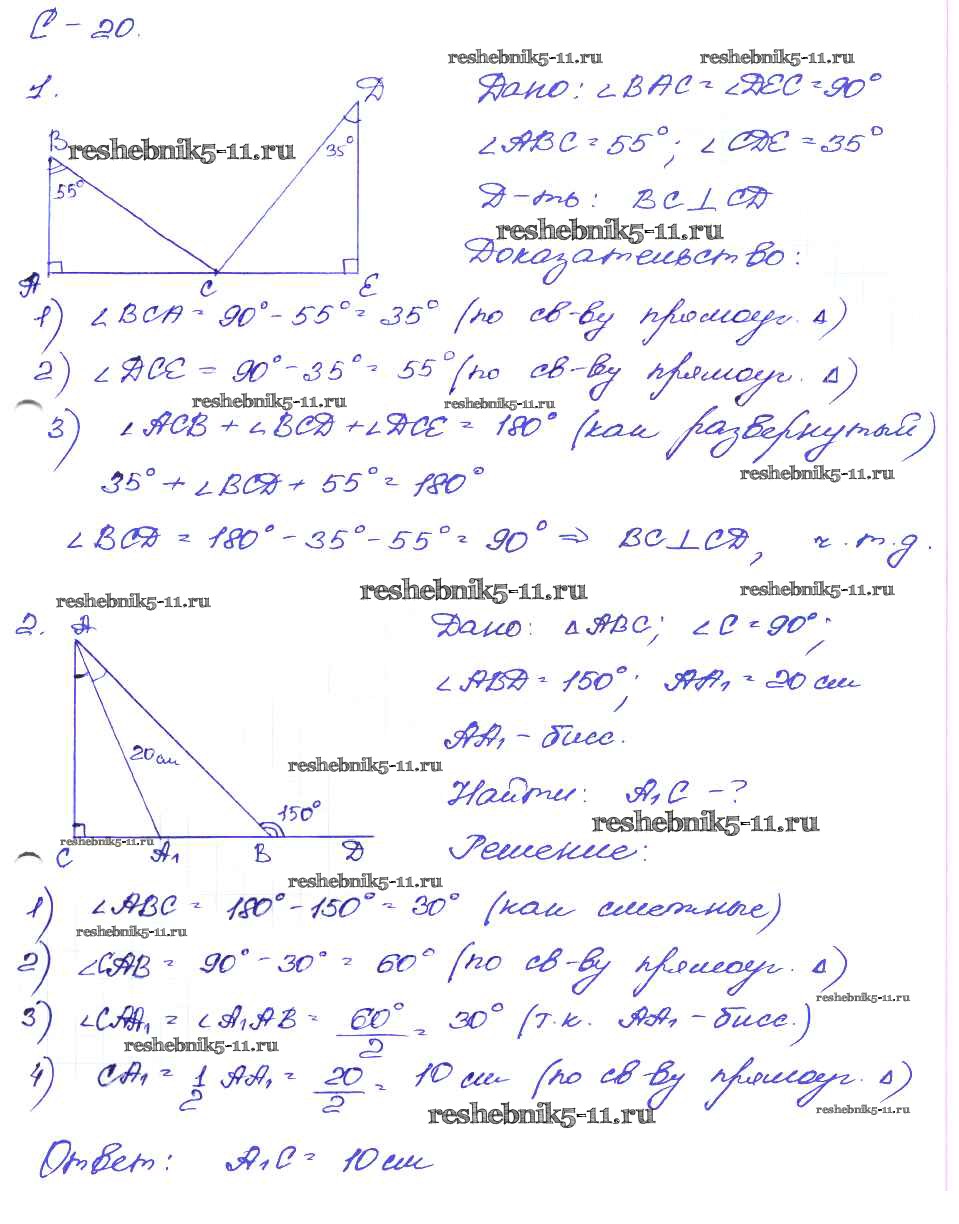 С - 20.
reshebnik5-11.ru reshebnik5-11.ru
1.
Д
Дано: ∠BAC = ∠DEC = 90°
B
reshebnik5-11.ru
35°
∠ABC = 55°; ∠CDE = 35°
55°
Д-ть: BC⊥CD
reshebnik5-11.ru
Доказательство:
A C E
1) ∠BCA = 90° - 55° = 35° (по св-ву прямоуг. Δ)
2) ∠DCE = 90° - 35° = 55° (по св-ву прямоуг. Δ)
reshebnik5-11.ru reshebnik5-11.ru
3) ∠ACB + ∠BCD + ∠DCE = 180° (как развернутый)
reshebnik5-11.ru
35° + ∠BCD + 55° = 180°
∠BCD = 180° - 35° - 55° = 90° ⇒ BC⊥CD, ч.т.д.
reshebnik5-11.ru reshebnik5-11.ru reshebnik5-11.ru
2.
A
Дано: ΔABC; ∠C = 90°;
∠ABD = 150°; AA₁ = 20 см
AA₁ - бисс.
20 см
reshebnik5-11.ru
Найти: A₁C - ?
150°
reshebnik5-11.ru
reshebnik5-11.ru
C A₁ B D
Решение:
reshebnik5-11.ru
1) ∠ABC = 180° - 150° = 30° (как смежные)
reshebnik5-11.ru
2) ∠CAB = 90° - 30° = 60° (по св-ву прямоуг. Δ)
reshebnik5-11.ru
3) ∠CAA₁ = ∠A₁AB = 60°/2 = 30° (т.к. AA₁ - бисс.)
reshebnik5-11.ru
4) CA₁ = 1/2 AA₁ = 20/2 = 10 см (по св-ву прямоуг. Δ)
reshebnik5-11.ru reshebnik5-11.ru
Ответ: A₁C = 10 см